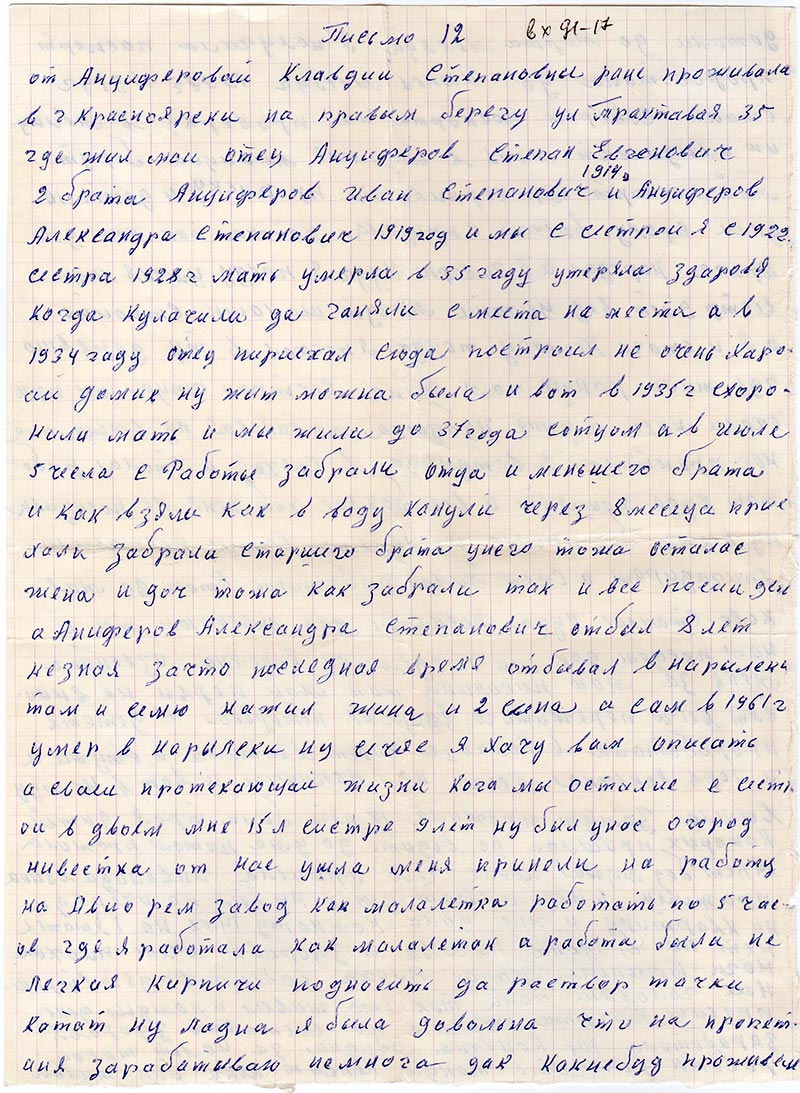 Письмо 12 вх 91-17
от Анциферовай Клавдии Степановны ране проживала
в г Красноярски на правым берегу ул Трактавая 35
где жил мои отец Анциферов Степан Евгенович
1914г
2 брата Анциферов Иван Степанович и Анциферов
Александра Степанович 1919 год и мы с сестрои я с 1922
сестра 1928 г мать умерла в 35 гаду утеряла здаровя
когда кулачили да ганяли с места на места а в
1934 гаду отец париехал сюда построил не очень харо-
ай домик ну жит можна была и вот в 1935 г схоро-
нили мать и мы жили до 37 года сотцом а в июле
5 числа с Работы забрали отца и меньшего брата
и как взяли как в воду канули через 8 месеца прие
хали забрали старшего брата унего тожа осталас
жена и доч тожа как забрали так и все посии ден
а Анциферов Александра Степанович отбыл 8 лет
незная зачто последная время отбывал в нарылски
там и семю нажил жина и 2 сына а сам в 1961 г
умер в нарылски ну сечяс я хачу вам описать
а сваеи протекающаи жизни кога мы осталис с сестр
ои в двоем мне 15 л систре 9 лет ну был унас огород
нивестка от нас ушла меня приняли на работу
на Авио рем завод как малалетка работать по 5 час-
ов где я работала как малалеток а работа была не
легкая Кирпичи подносить да раствор тачки
катат ну ладна я была давольна что на пропет-
ания зарабатываю немнога дак какнебуд проживем